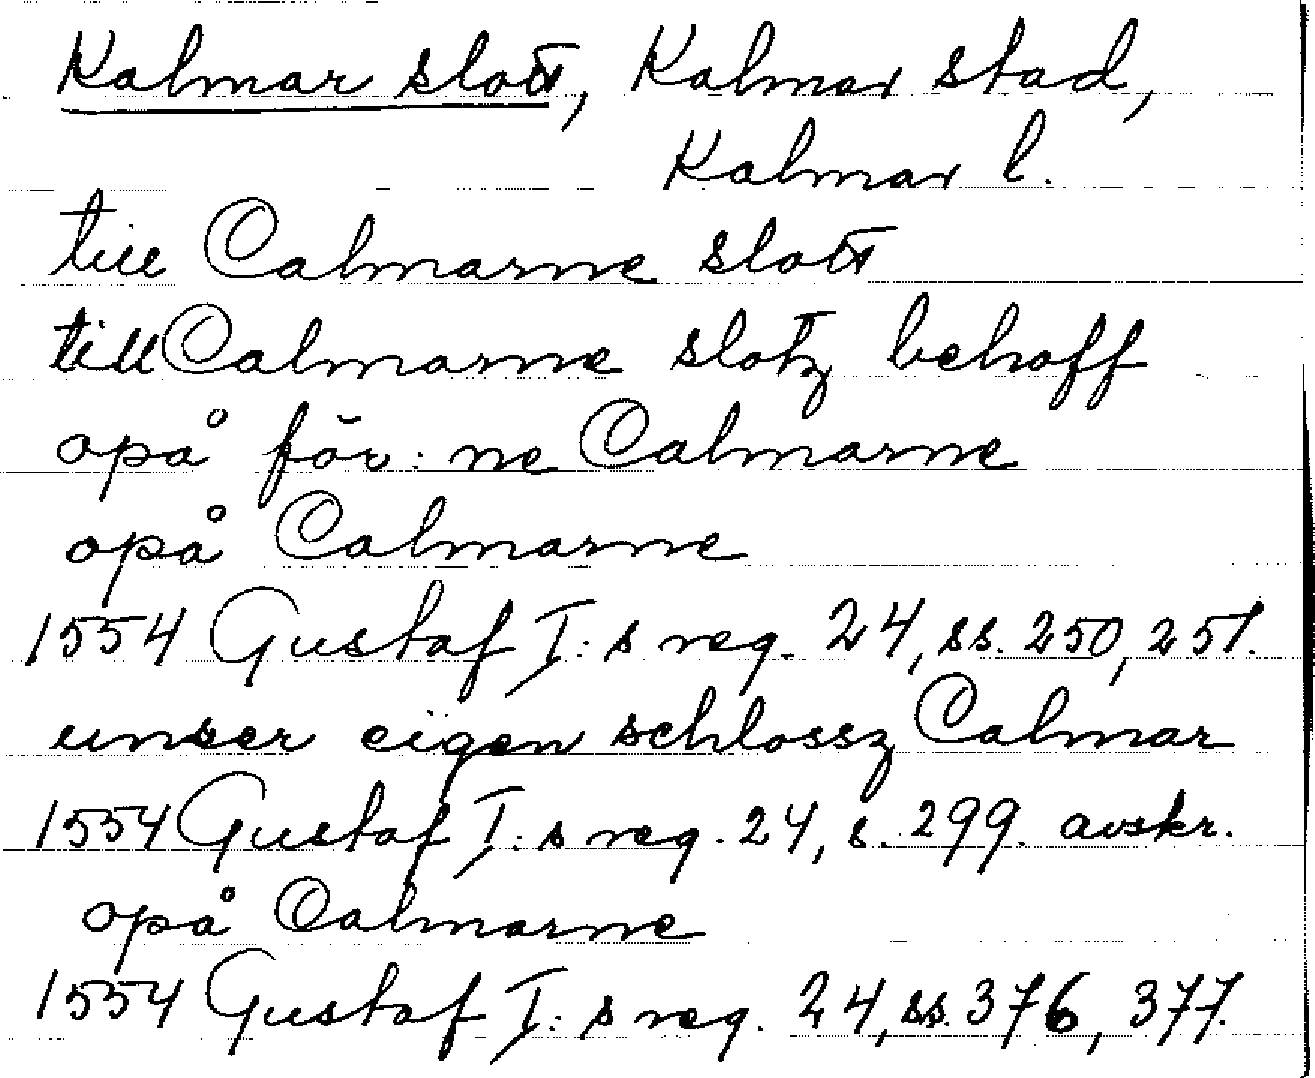 Kalmar slott, Kalmar stad,
Kalmar l.
till Calmarne slott
till Calmarne slotz behoff
opå för: ne Calmarne
opå Calmarne
1554 Gustaf I:s reg. 24, ss. 250, 251.
unser eigen schlossz Calmar
1554 Gustaf I:s reg. 24, s. 299. avskr.
opå Calmarne
1554 Gustaf I:s reg. 24, ss. 376, 377.